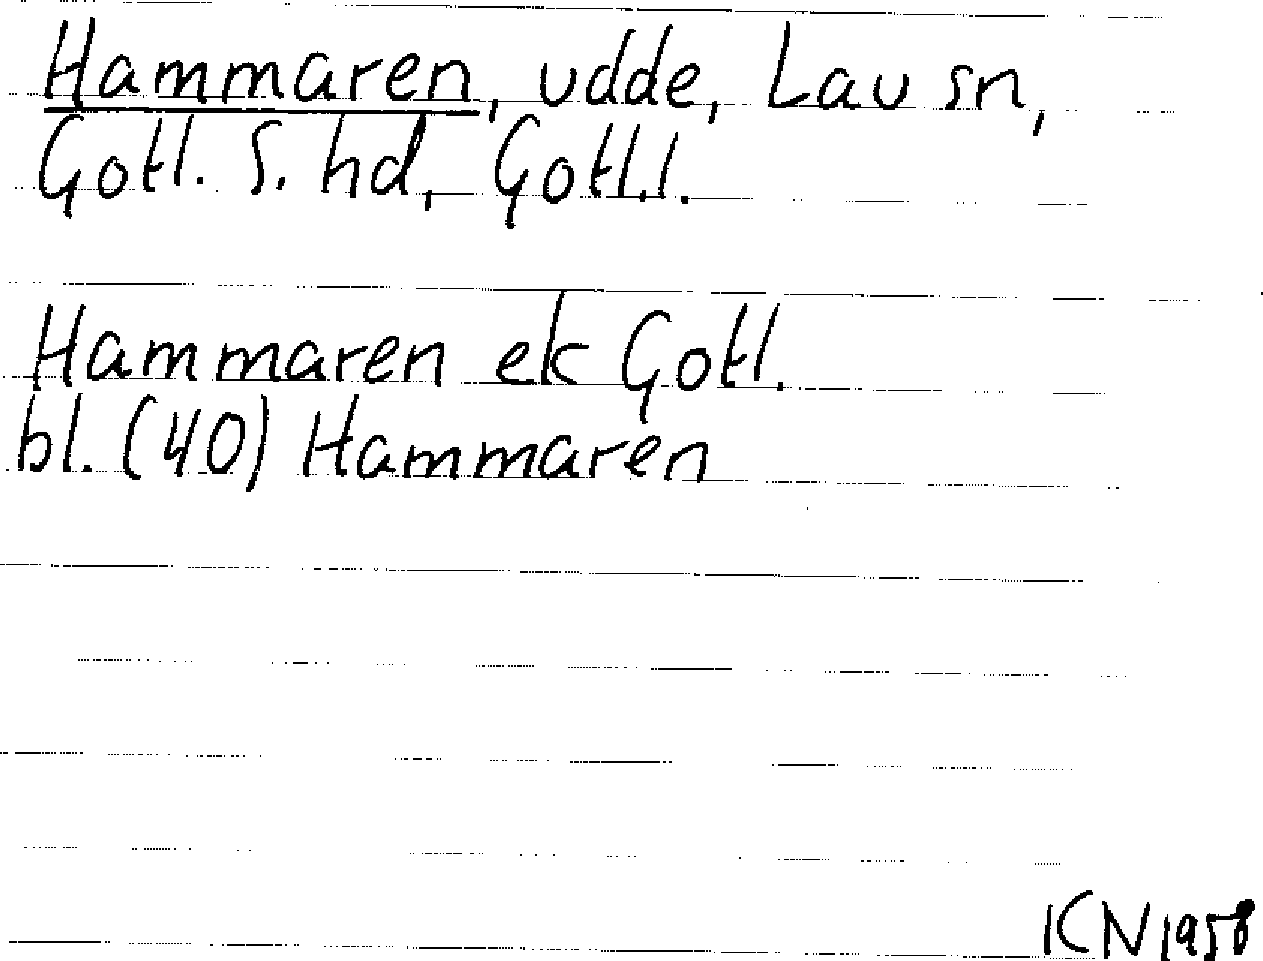 Hammaren, udde, Lau sn,
Gotl. S. hd, Gotl.l.
Hammaren ek Gotl.
bl. (40) Hammaren
KN 1958